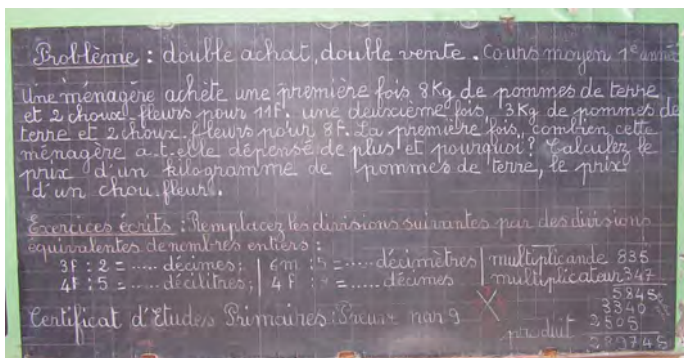 Problème : double achat, double vente. Cours moyen 1e année
Une ménagère achète une première fois 8Kg de pommes de terre
et 2 choux-fleurs pour 11F. une deuxième fois, 3Kg de pommes de
terre et 2 choux-fleurs pour 8F. La première fois, combien cette
ménagère a-t-elle dépensé de plus et pourquoi ? Calculez le
prix d'un kilogramme de pommes de terre, le prix
d'un chou-fleur.
Exercices écrits : Remplacez les divisions suivantes par des divisions
équivalentes de nombres entiers :
3F : 2 = ..... décimes; 6m : 5 = ..... décimètres multiplicande 835
4F : 5 = ..... décilitres; 4F : = ..... décimes multiplicateur 347
5845
3340
Certificat d'Etudes Primaires : Preuve par 9
produit 2505
289745